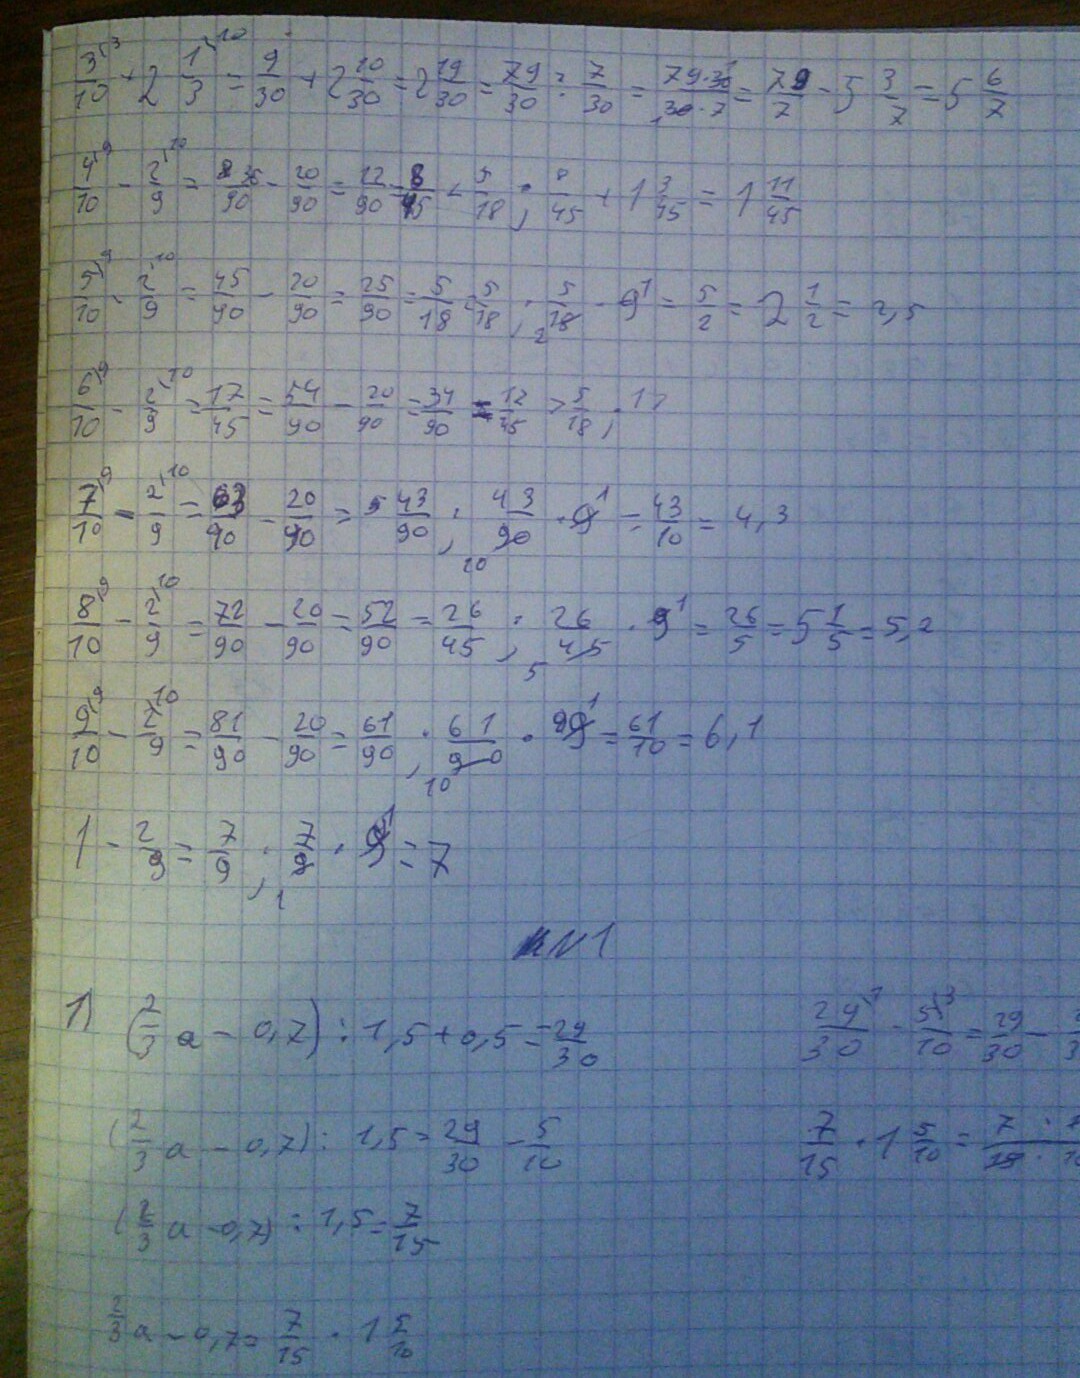 3/10 + 2 1/3 = 9/30 + 2 10/30 = 2 19/30 = 79/30 : 7/30 = 79·30/30·7 = 79/7 - 5 3/7 = 5 6/7
4/10 - 2/9 = 36/90 - 20/90 = 12/90 = 8/45 < 5/18 ; 8/45 + 1 3/45 = 1 11/45
5/10 - 2/9 = 45/90 - 20/90 = 25/90 = 5/18 = 5/18 ; 5/18 · 9 = 5/2 = 2 1/2 = 2,5
6/10 - 2/9 = 17/45 = 54/90 - 20/90 = 34/90 = 12/45 > 5/18 ;
7/10 - 2/9 = 63/90 - 20/90 = 43/90 ; 43/90 · 9 = 43/10 = 4,3
8/10 - 2/9 = 72/90 - 20/90 = 52/90 = 26/45 ; 26/45 · 9 = 26/5 = 5 1/5 = 5,2
9/10 - 2/9 = 81/90 - 20/90 = 61/90 ; 61/90 · 9 = 61/10 = 6,1
1 - 2/9 = 7/9 ; 7/9 · 9 = 7
N1
1) (2/3 a - 0,7) : 1,5 + 0,5 = 29/30
29/30 - 5/10 = 29/30 -
(2/3 a - 0,7) : 1,5 = 29/30 - 5/10
7/15 · 1 5/10 =
(2/3 a - 0,7) : 1,5 = 7/15
2/3 a - 0,7 = 7/15 · 1 5/10